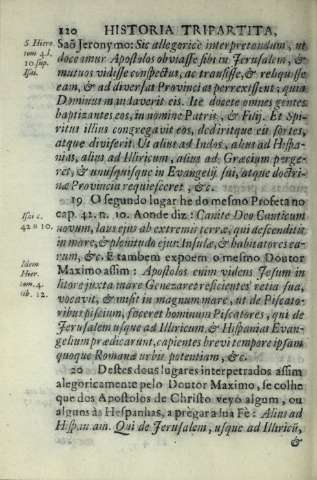 120 HISTORIA TRIPARTITA,
S. Hiero
tom 4. l.
10. sup.
Isai.
Saõ Jeronymo: Sic allegoricè interpretandum, ut
doceamur Apostolos obviasse sibi in Jerusalem, &
mutuos vidisse conspectus, ac transisse, & reliquisse
eam, & ad diversas Provincias perrexissent, quia
Dominus mandaverit eis. Ite docete omnes gentes
baptizantes eos, in nomine Patris, & Filij. Et Spi-
ritus illius congregavit eos, deditque eu sortes,
atque diviserit. Ut alius ad Indos, alius ad Hespa-
nias, alius ad Illiricum, alius ad Græcium perge-
ret, & unusquisque in Evangelij sui, atque doctri-
næ Provincia requiesceret, &c.
19. O segundo lugar he do mesmo Profeta no
Isai c.
42 n 10.
cap. 42. n. 10. Aonde diz: Canite Deo Canticum
novum, laus ejus ab extremis terræ, qui descenditis
in mare, & plenitudo ejus: Insulæ, & habitatores ea-
rum, &c. E tambem expoem o mesmo Doutor
Idem
Hier.
tom. 4.
lib. 12.
Maximo assim: Apostolos enim videns Jesum in
litore juxta mare Genezaret reficientes retia sua,
vocavit, & misit in magnum mare, ut de Piscato-
ribus piscium, faceret hominum Piscatores, qui de
Jerusalem usque ad Illiricum, & Hispanias Evan-
gelium prædicarunt, capientes brevi tempore ipsam
quoque Romanæ urbis potentiam, &c.
20 Destes dous lugares interpetrados assim
alegoricamente pelo Doutor Maximo, se colhe
que dos Apostolos de Christo veyo algum, ou
alguns às Hespanhas, a prègar a lua Fè: Alius ad
Hispaniam. Qui de Jerusalem, usque ad Illiricũ,
&